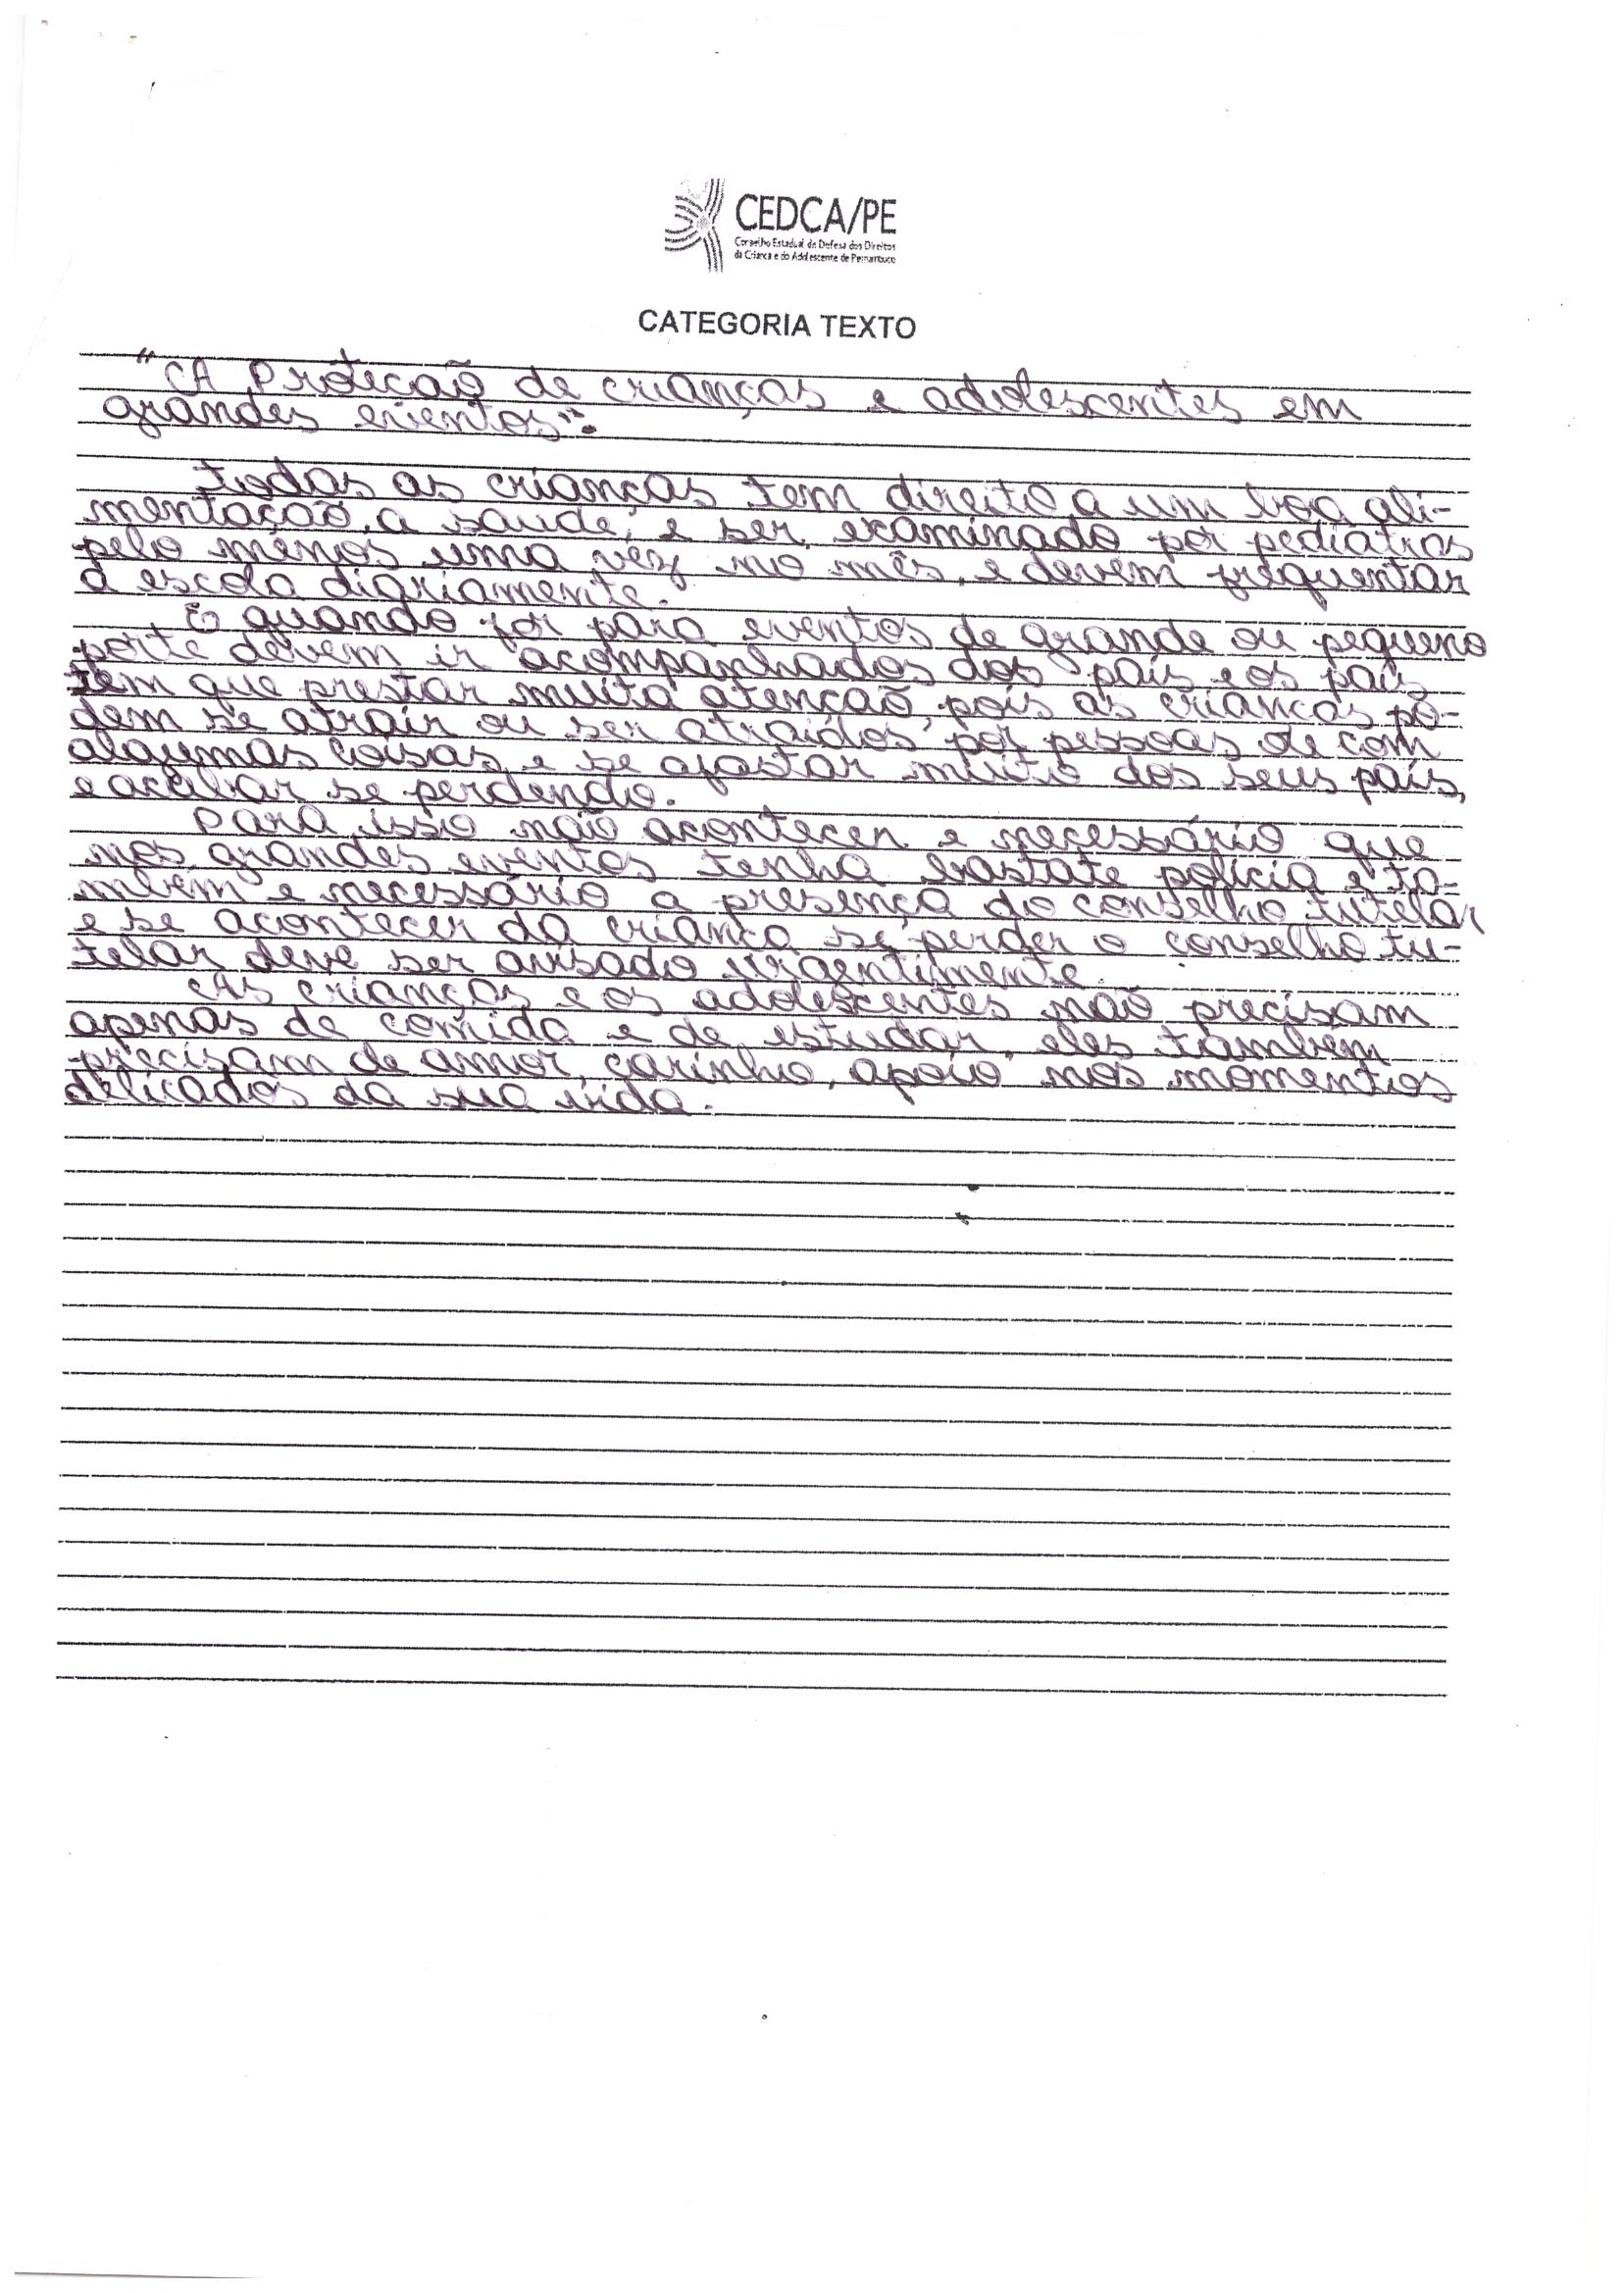 CEDCA/PE
Conselho Estadual de Defesa dos Direitos
da Criança e do Adolescente de Pernambuco
CATEGORIA TEXTO
"A Proteção de crianças e adolescentes em
grandes eventos":
todas as crianças tem direito a um boa ali-
mentação, a saude, e ser examinado por pediatras
pelo menos uma vez no mês, e devem frequentar
a escola digriamente.
E quando for para eventos de grande ou pequeno
porte devem ir acompanhados dos pais e os pais
tem que prestar muita atenção, pois as crianças po-
dem se atrair ou ser atraidos por pessoas de com
algumas coisas e se afastar muito dos seus pais,
e acabar se perdendo.
Para isso não acontecer e necessário que
nos grandes eventos tenha bastate policia e ta-
mbém e necessário a presença do conselho tutelar
e se acontecer da criança se perder o conselho tu-
telar deve ser avisado urgentimente.
As crianças e os adolescentes não precisam
apenas de comida e de estudar, eles também
precisam de amor, carinho, apoio nos momentios
delicados da sua vida.